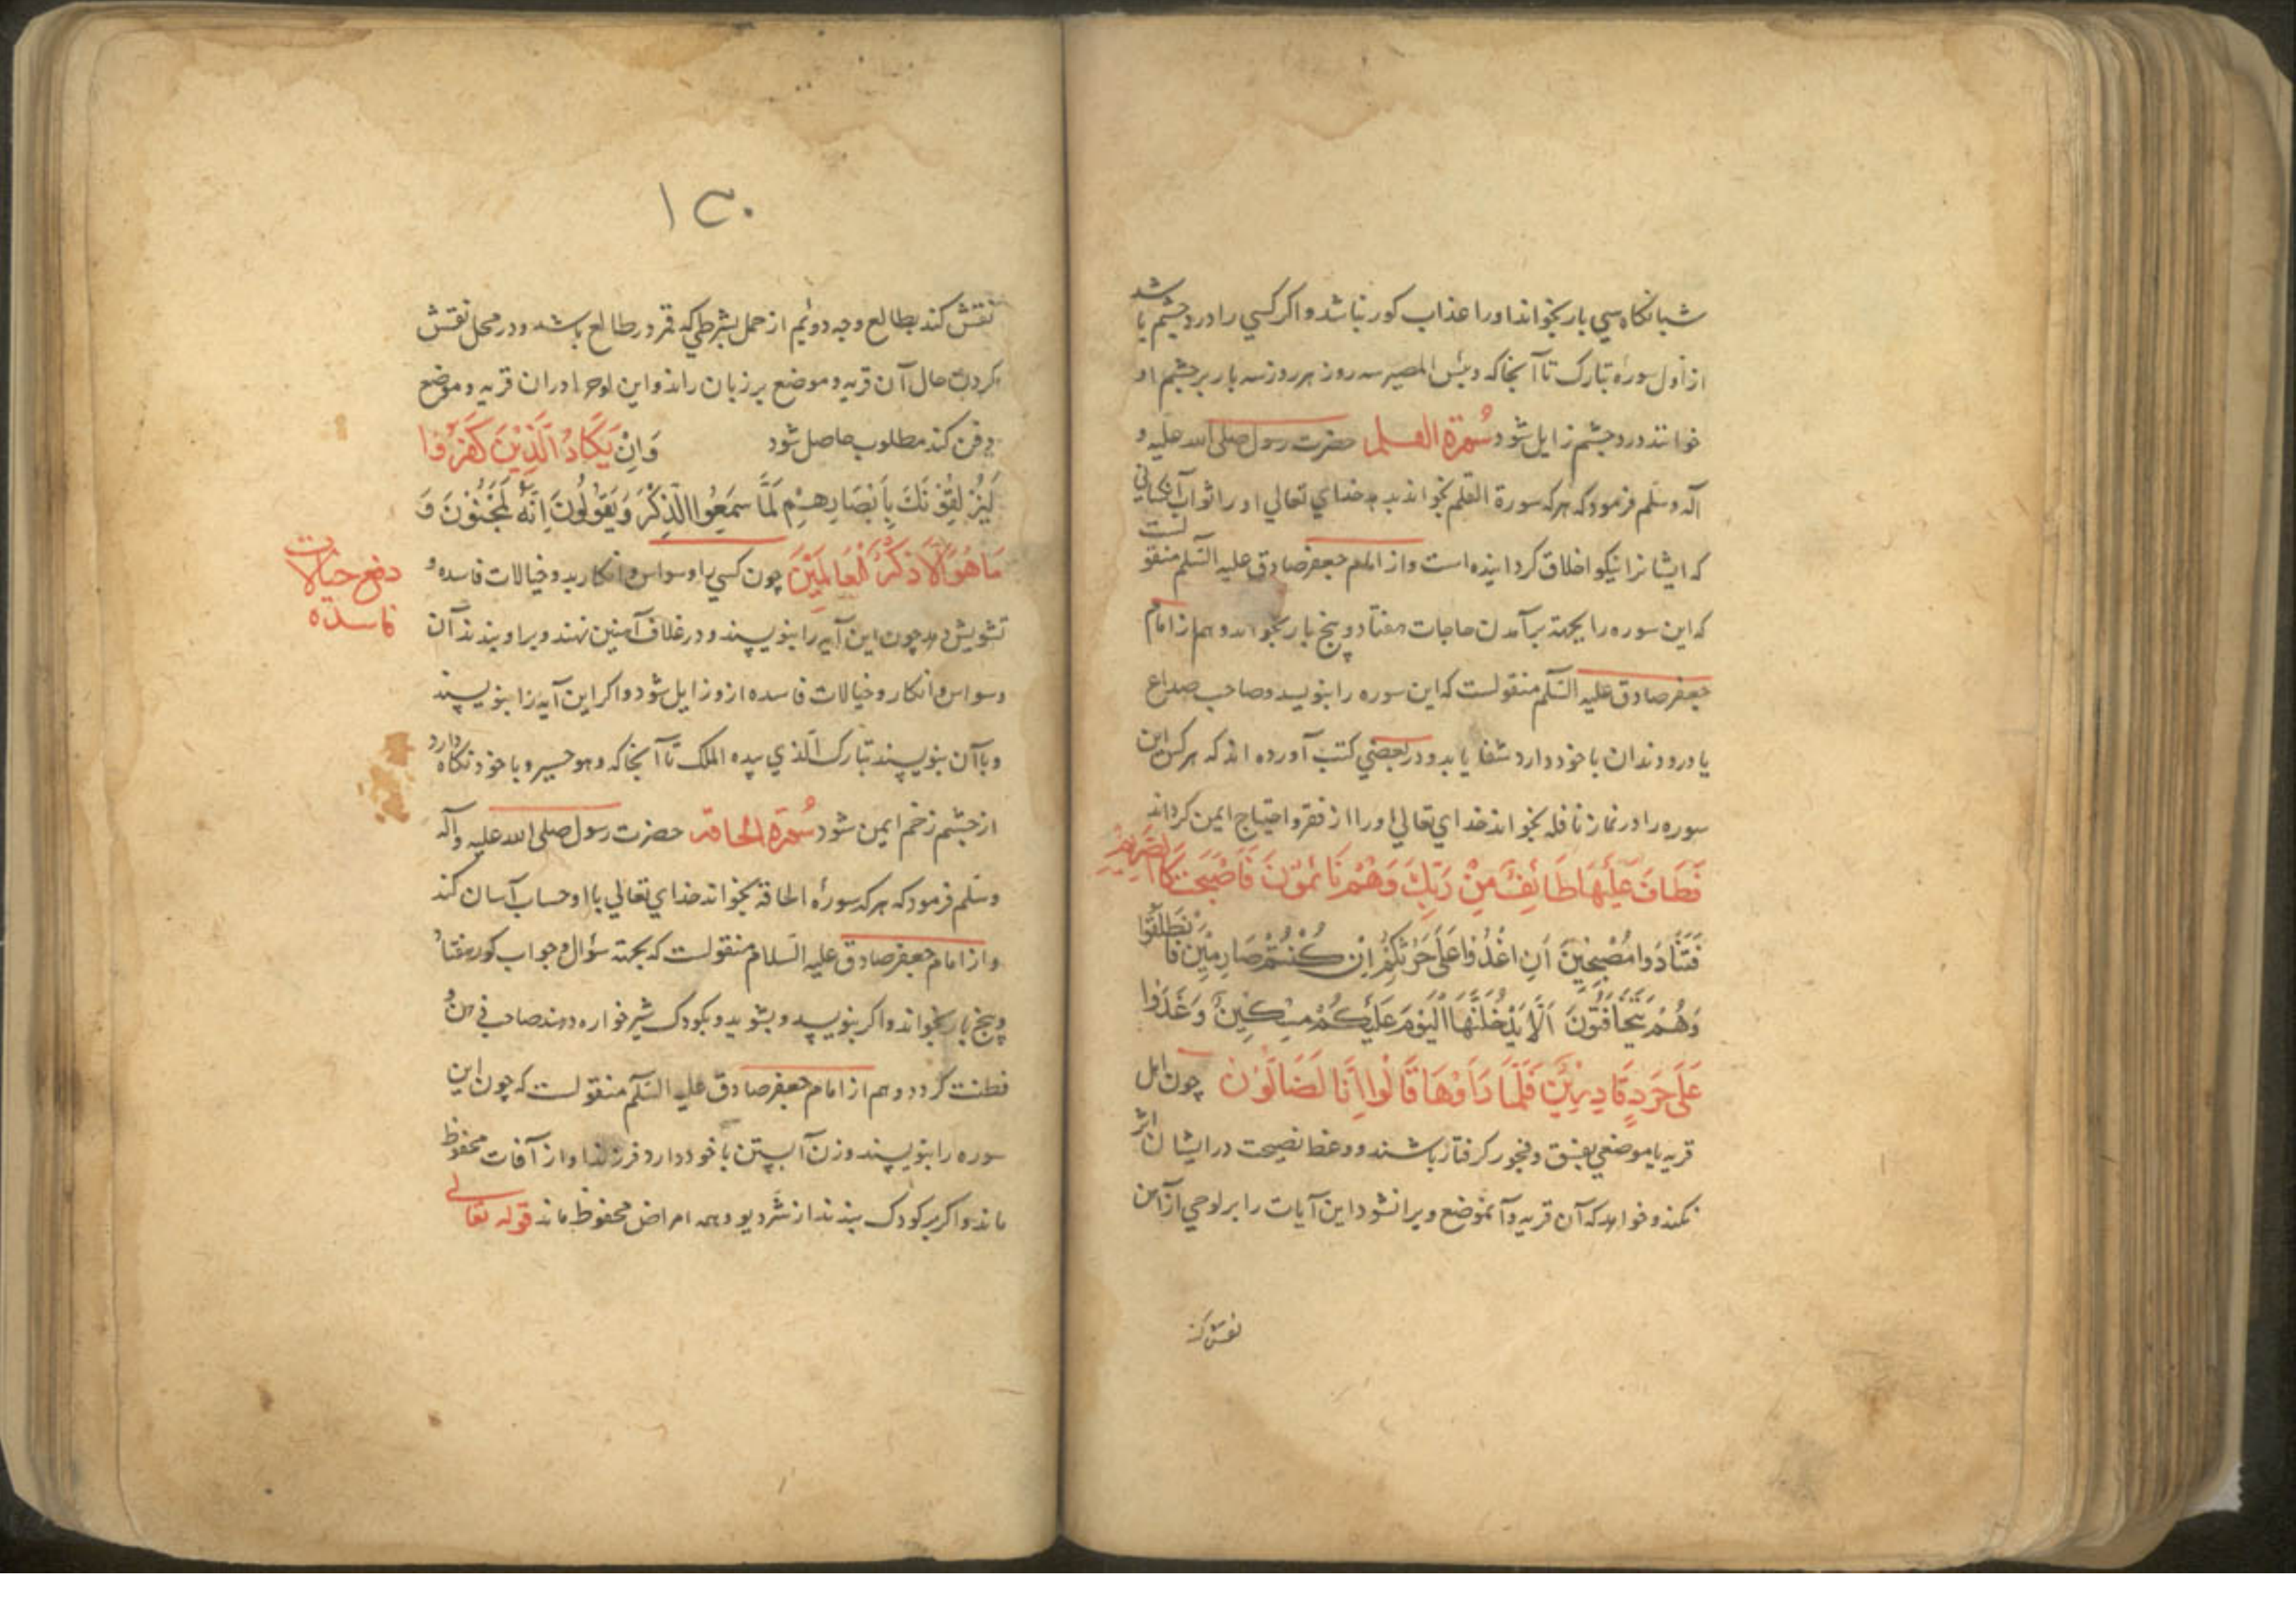 شبانکاه سي بار بخواند اورا عذاب کور نباشد واکر کسي را درد چشم باشد
از اول سورۀ تبارک تا آنجا که وبئس المصیر سه روز هر روز سه بار بر چشم او
خوانند درد چشم زایل شود سورة القلم حضرت رسول صلی الله علیه و
آله وسلم فرمود که هر که سورة القلم بخواند بدهد خداي تعالي اورا ثواب آنکساني
که ایشانرا نیکو اخلاق کردانیده است واز امام جعفر صادق علیه السلم منقولست
که این سوره را بجهة برآمدن حاجات هفتاد وپنج بار بخواند وهم از امام
جعفر صادق علیه السلم منقولست که این سوره را بنویسد وصاحب صداع
یا درد دندان با خود دارد شفا یابد ودر بعضي کتب آورده اند که هر کس این
سوره را در نماز نافله بخواند خداي تعالي اورا از فقر واحتیاج ایمن کرداند
فَطَافَ عَلَيْهَا طَائِفٌ مِنْ رَبِّكَ وَهُمْ نَائِمُونَ فَأَصْبَحَتْ كَالصَّرِيمِ
فَتَنَادَوا مُصْبِحِينَ أَنِ اغْدُوا عَلَى حَرْثِكُمْ إِنْ كُنْتُمْ صَارِمِينَ فَانْطَلَقُوا
وَهُمْ يَتَخَافَتُونَ أَلَّا يَدْخُلَنَّهَا الْيَوْمَ عَلَيْكُمْ مِسْكِينٌ وَغَدَوا
عَلَى حَرْدٍ قَادِرِينَ فَلَمَّا رَأَوْهَا قَالُوا إِنَّا لَضَالُّونَ چون اهل
قریه یا موضعي بفسق وفجور کرفتار باشند ووعظ نصیحت در ایشان اثر
نکند وخواهد که آن قریه وآنموضع ویرانشود این آیات را بر لوحي از آهن
نقش کند
١٣٠
نقش کند بطالع وجه دوئم از حمل بشرطي که قمر در طالع باشد ودر محل نقش
کردن حال آن قریه وموضع بر زبان راند واین لوح را در ان قریه وموضع
دفن کند مطلوب حاصل شود وَإِنْ يَكَادُ الَّذِينَ كَفَرُوا
لَيُزْلِقُونَكَ بِأَبْصَارِهِمْ لَمَّا سَمِعُوا الذِّكْرَ وَيَقُولُونَ إِنَّهُ لَمَجْنُونٌ وَ
مَا هُوَ إِلَّا ذِكْرٌ لِلْعَالَمِينَ چون کسي را وسواس وافکار بد وخیالات فاسده و
دفع خیالات
فاسده
تشویش دهد چون این آیه را بنویسند ودر غلاف آهنین نهند وبر او بندند آن
وسواس وافکار وخیالات فاسده ازو زایل شود واکر این آیه را بنویسند
وباآن بنویسند تبارک الذي بیده الملک تا آنجا که وهو حسیر وبا خود نکاه دارد
از چشم زخم ایمن شود سورة الحاقه حضرت رسول صلی الله علیه وآله
وسلم فرمود که هر که سورۀ الحاقه بخواند خداي تعالي با او حساب آسان کند
واز امام جعفر صادق علیه السلام منقولست که بجهة سؤال وجواب کور هفتاد
وپنج بار بخواند واکر بنویسد وبشوید وبکودک شیرخواره دهند صاحب ذهن و
فطنت کردد وهم از امام جعفر صادق علیه السلم منقولست که چون این
سوره را بنویسند وزن آبستن با خود دارد فرزند او از آفات محفوظ
ماند واکر بر کودک بندند از شر دیو وهمه امراض محفوظ ماند قوله تعالی